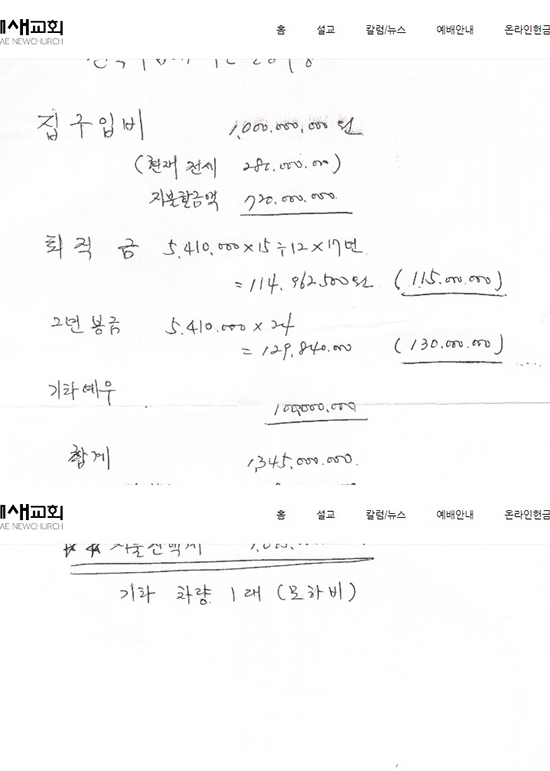 새교회
AE NEWCHURCH
홈 설교 칼럼/뉴스 예배안내 온라인헌금
집구입비 1,000.000,000원
(현재 전세 280.000.000)
지불할금액 720.000.000
퇴직금 5.410.000×15÷12×17년
=114.962.500원 (115.000.000)
2년봉급 5.410.000×24
=129.840.000 (130.000.000)
기타예우 100,000,000
합계 1,345.000.000.
새교회
AE NEWCHURCH
홈 설교 칼럼/뉴스 예배안내 온라인헌금
기타 차량 1대 (모하비)